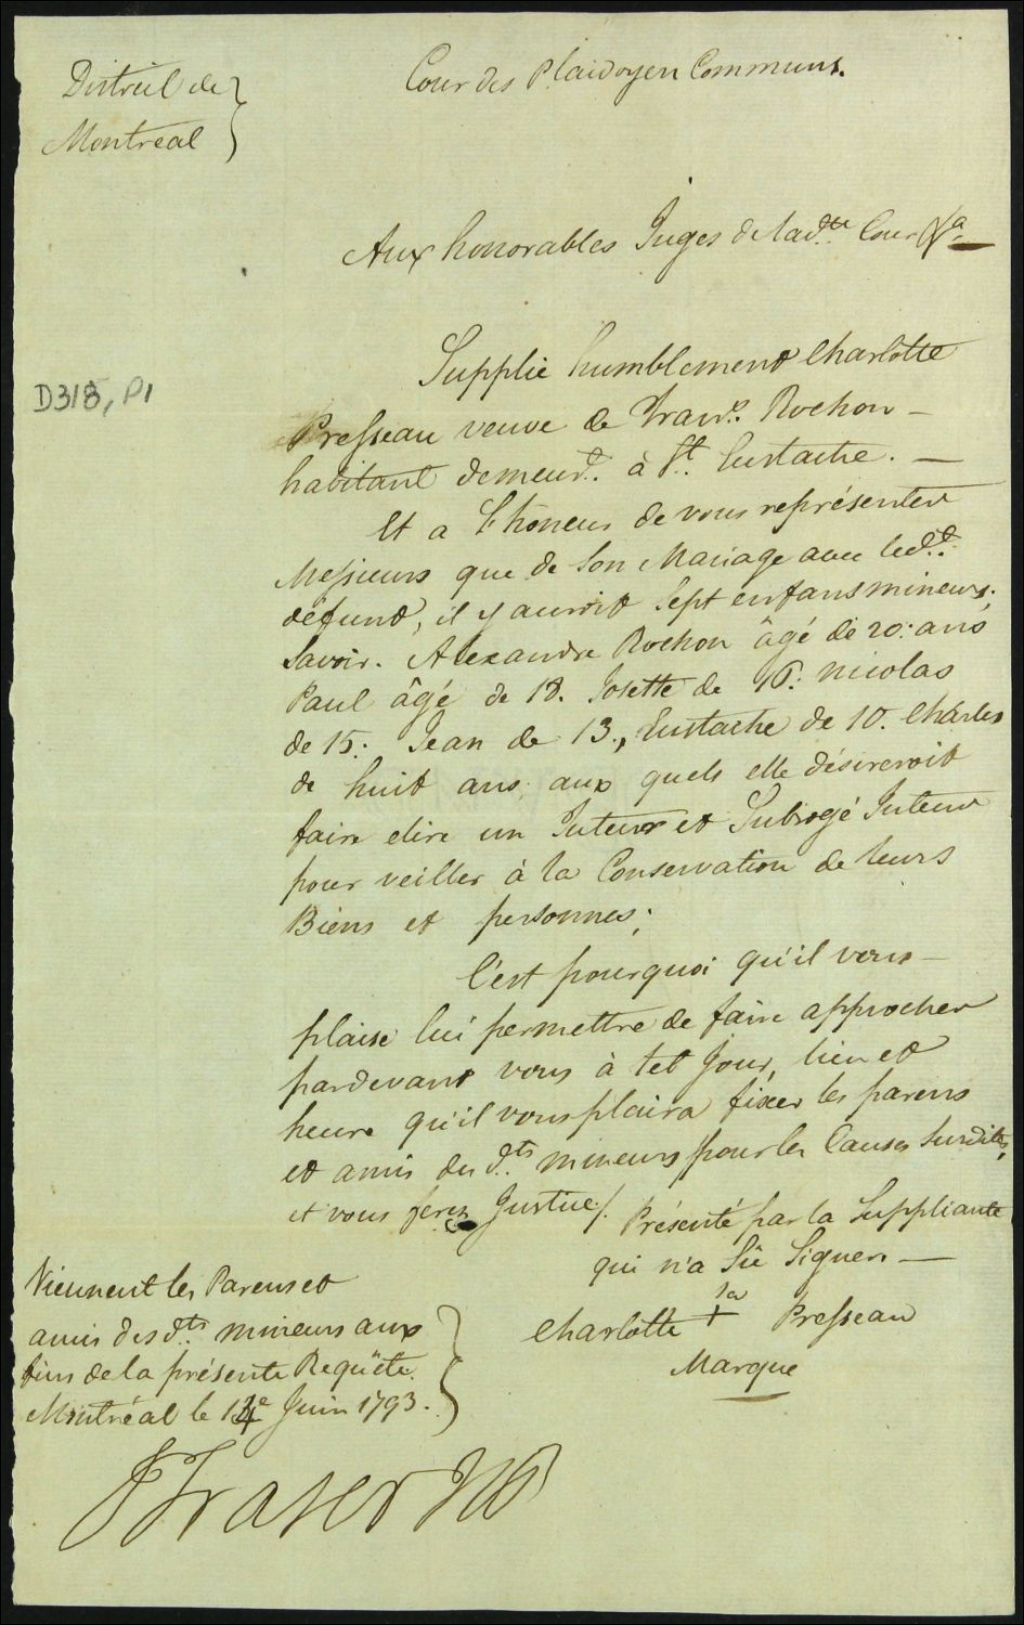 District de
Montreal
Cour des Plaidoyers Communs.
Aux honorables Juges de lad.tte Cour &a.
D318, P1
Supplie humblement Charlotte
Presseau veuve de Frans. Rochon –
habitant demeurt. à St. Eustache. —
Et a l'honeur de vous représenter
Messieurs que de Son Mariage avec led.t
défunt, il y auroit Sept enfans mineurs;
Savoir. Alexandre Rochon âgé de 20: ans
Paul âgé de 18. Josette de 16: nicolas
de 15: Jean de 13., Eustache de 10. Charles
de huit ans; aux quels elle désireroit
faire elire un Tuteur et Subrogé Tuteur
pour veiller à la Conservation de leurs
Biens et personnes;
C'est pourquoi qu'il vous –
plaise lui permettre de faire approcher
pardevant vous à tel Jour, lieu et
heure qu'il vous plaira fixer les parens
et amis des d.ts mineurs pour les Causes Susdites,
et vous ferez Justice/.
Présenté par la Suppliante
qui n'a Sû Signer —
la
Charlotte + Presseau
Marque
Viennent les Parens et
amis des d.ts mineurs aux
fins de la présente Requête.
Montréal le 14e Juin 1793.
J Fraser